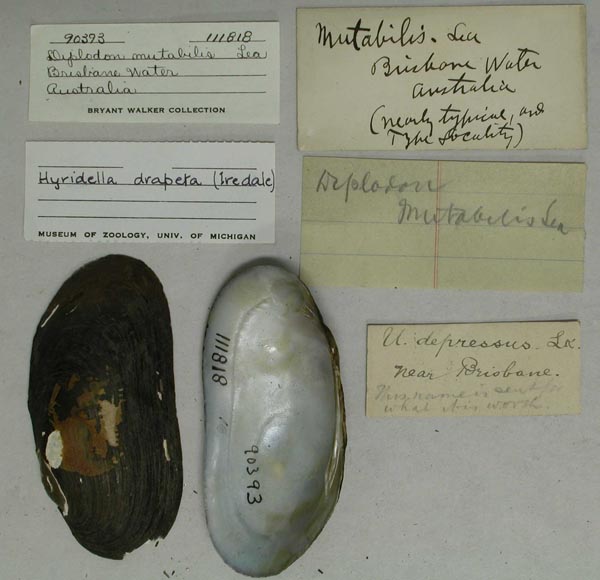 90393 111818
Diplodon mutabilis Lea
Brisbane Water
Australia
BRYANT WALKER COLLECTION
Mutabilis. Lea
Brisbane Water
Australia
(nearly typical, and
Type locality)
Hyridella drapeta (Iredale)
MUSEUM OF ZOOLOGY, UNIV. OF MICHIGAN
Diplodon
Mutabilis Lea
U. depressus. La.
near Brisbane.
This name is sent for
what it is worth.
111818
90393